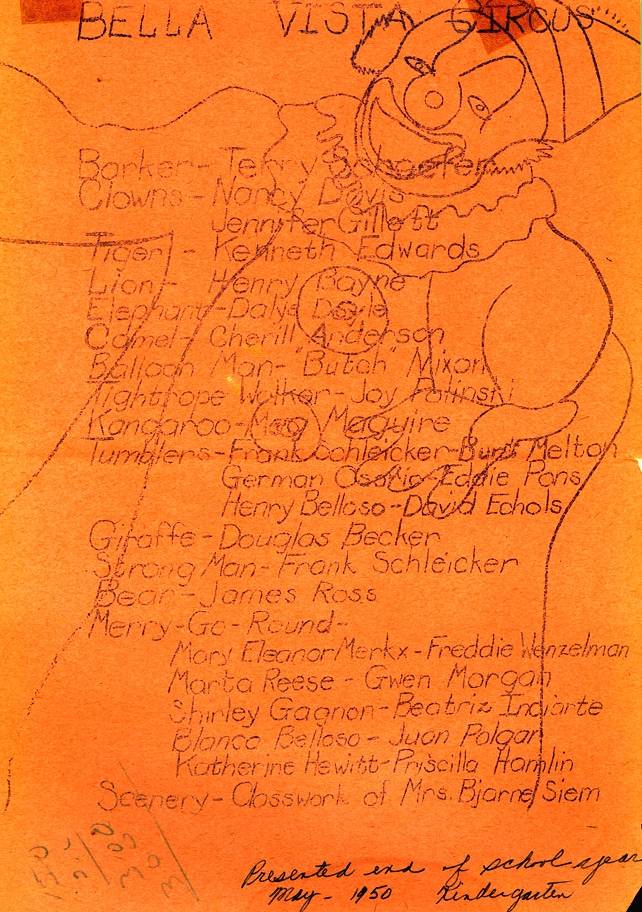 BELLA VISTA CIRCUS
Barker- Terry Schaefer
Clowns- Nancy Davis
Jennifer Gillett
Tiger - Kenneth Edwards
Lion - Henry Bayne
Elephant- Doyle
Camel- Cherill Anderson
Balloon Man- "Butch" Nixon
Tightrope Walker- Joy Palinski
Kangaroo- Maguire
Tumblers- Frank Schleicker- Burt Melton
German Osorio- Eddie Pons
Henry Belloso- David Echols
Giraffe- Douglas Becker
Strong Man- Frank Schleicker
Bear- James Ross
Merry-Go-Round-
Mary Eleanor Merkx- Freddie Wenzelman
Marta Reese - Gwen Morgan
Shirley Gagnon- Beatriz Inciarte
Blanca Belloso - Juan Polgar
Katherine Hewitt- Priscilla Hamlin
Scenery- Classwork of Mrs. Bjarne Siem
Presented end of school year
May- 1950 Kindergarten